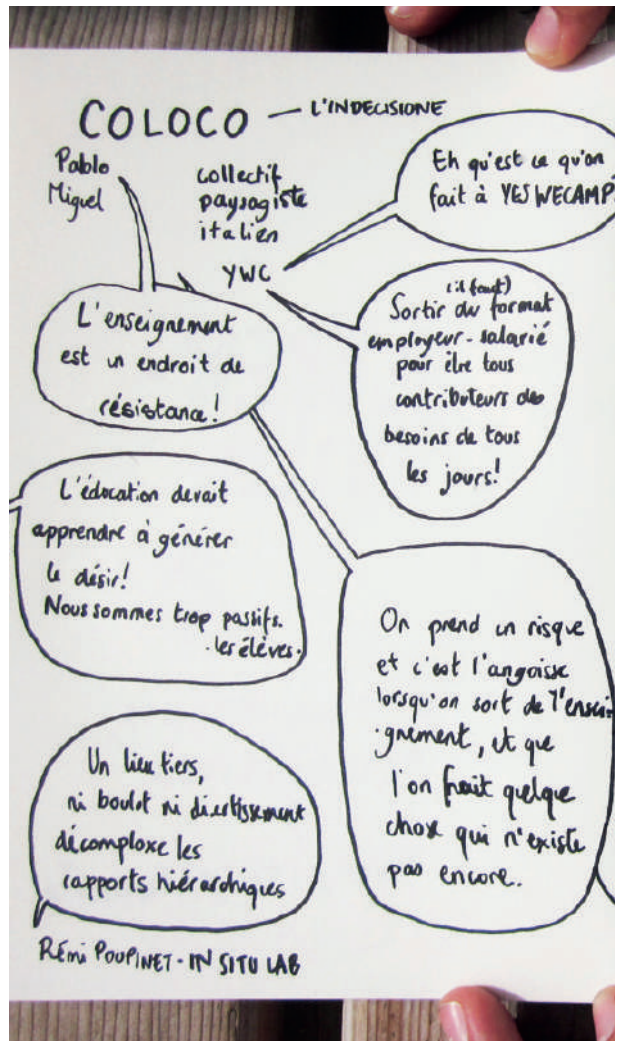 COLOCO — L'INDECISIONE
Pablo
Miguel
collectif
paysagiste
italien
YWC
Eh qu'est ce qu'on
fait à YES WECAMP?
(il faut)
Sortir du format
employeur-salarié
pour être tous
contributeurs des
besoins de tous
les jours!
L'enseignement
est un endroit de
résistance!
L'éducation devait
apprendre à générer
le désir!
Nous sommes trop passifs.
·les élèves·
On prend un risque
et c'est l'angoisse
lorsqu'on sort de l'ensei-
·gnement, et que
l'on frait quelque
chose qui n'existe
pas encore.
Un lieu tiers,
ni boulot ni divertissement
décomplexe les
rapports hiérarchiques
Rémi POUPINET - IN SITU LAB